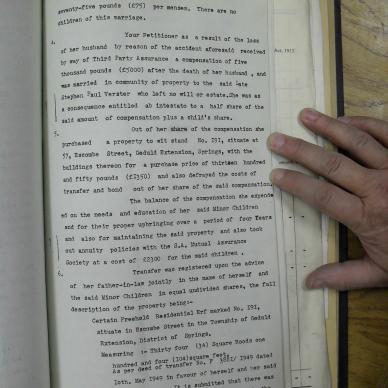 seventy-five pounds (£75) per mensem. There are no
children of this marriage.
4.
Your Petitioner as a result of the loss
of her husband by reason of the accident aforesaid received
by way of Third Party Assurance a compensation of five
thousand pounds (£5000) after the death of her husband , and
was married in community of property to the said late
Stephen Paul Verster who left no will or estate. She was as
a consequence entitled ab intestato to a half share of the
said amount of compensation plus a child's share.
5.
Out of her share of the compensation she
purchased a property to wit stand No. I9I, situate at
57, Escombe Street, Geduld Extension, Springs, with the
buildings thereon for a purchase price of thirteen hundred
and fifty pounds (£I350) and also defrayed the costs of
transfer and bond out of her share of the said compensation.
The balance of the compensation she expend
ed on the needs and education of her said Minor Children
and for their proper upbringing over a period of four Years
and also for maintaining the said property and also took
out annuity policies with the S.A. Mutual Assurance
Society at a cost of £2300 for the said children .
6.
Transfer was registered upon the advice
of her father-in-law jointly in the name of herself and
the said Minor Children in equal undivided shares, the full
description of the property being:-
Certain Freehold Residential Erf marked No. I9I,
situate in Escombe Street in the Township of Geduld
Extension, District of Springs.
Measuring :- Thirty four (34) Square Roods one
hundred and four (I04) square feet
As per deed of transfer No. F / I949 dated
I0th. May I949 in favour of herself and her said
It is submitted that there was